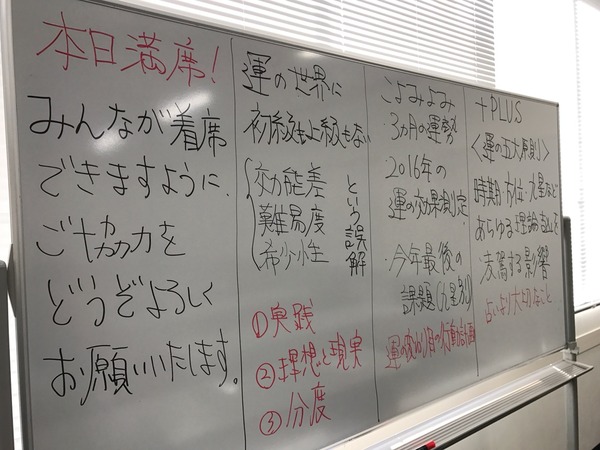 本日満席!
みんなが着席
できますように、
ご協力を
どうぞよろしく
お願いいたします。
運の世界に
初級も上級もない
効能差
難易度
希少性
という誤解
①実践
②理想と現実
③分度
こよみよみ
3ヵ月の運勢
2016年の
運の効果測定
・今年最後の
課題(九星別)
運の変わり目の行動計画
+PLUS
<運の五大原則>
時期・方位・九星など
あらゆる理論
凌駕する影響
占いより大切なこと